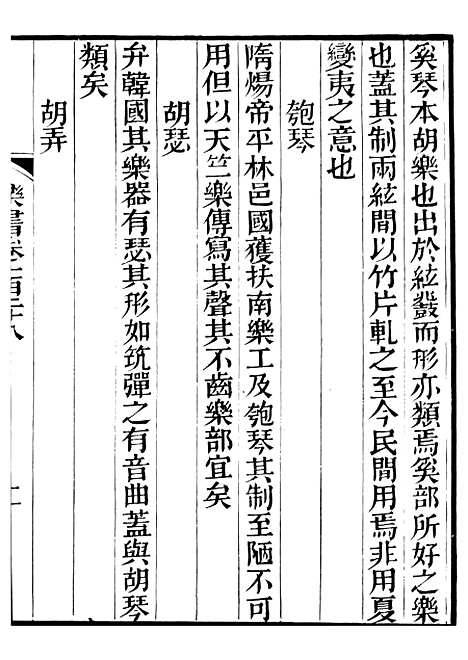 奚琴本胡樂也出於絃鼗而形亦類焉奚部所好之樂
也蓋其制兩絃間以竹片軋之至今民間用焉非用夏
變夷之意也
匏琴
隋煬帝平林邑國獲扶南樂工及匏琴其制至陋不可
用但以天竺樂傳寫其聲其不齒樂部宜矣
胡瑟
弁韓國其樂器有瑟其形如筑彈之有音曲蓋與胡琴
類矣
胡弄
樂書卷一百二十八
二